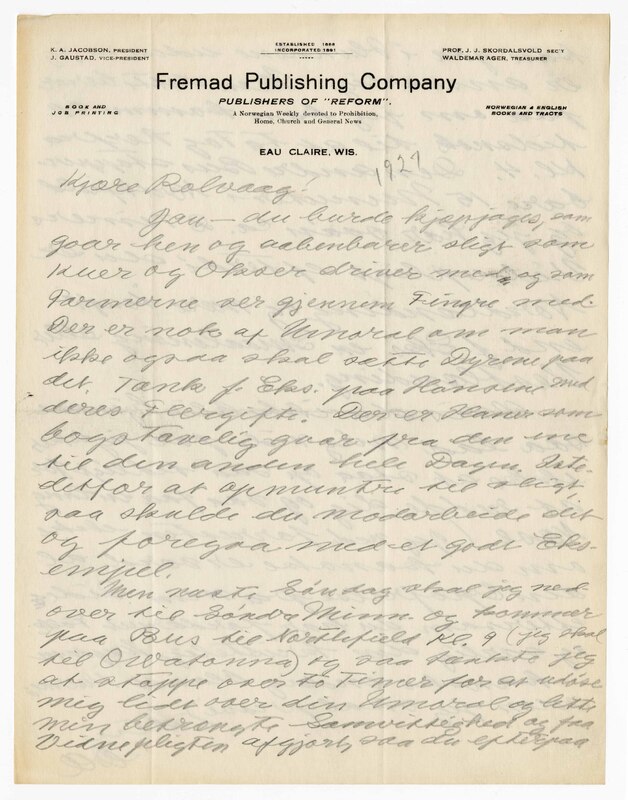 K. A. JACOBSON, PRESIDENT
J. GAUSTAD, VICE-PRESIDENT
ESTABLISHED 1886
INCORPORATED 1891
PROF. J. J. SKORDALSVOLD SEC'Y
WALDEMAR AGER, TREASURER
Fremad Publishing Company
PUBLISHERS OF "REFORM".
BOOK AND
JOB PRINTING
A Norwegian Weekly devoted to Prohibition,
Home, Church and General News
NORWEGIAN & ENGLISH
BOOKS AND TRACTS
EAU CLAIRE, WIS.
1927
Kjære Rolvaag!
Jau – du burde kjøpjages, som
gaar hen og aabenbarer sligt som
Kuer og Okser driver med og som
Farmerne ser gjennem Fingre med.
Der er nok af Umoral om man
ikke ogsaa skal sætte Dyrene paa
det. Tænk f. Eks. paa Hønsene med
deres Flergifte. Der er Haner som
bogstavelig gaar fra den ene
til den anden hele Dagen. Iste-
detfor at opmuntre til sligt,
saa skulde du modarbeide det
og foregaa med et godt Eks-
empel.
Men næste Søndag skal jeg ned-
over til Søndre Minn. og kommer
paa Bus til Northfield Kl. 9 (jeg skal
til Owatonna) og saa tænkte jeg
at stoppe over to Timer for at udøse
mig lidt over din Umoral og lette
min betrængte Samvittighed og faa
Vidnepligten afgjort, saa du efterpaa